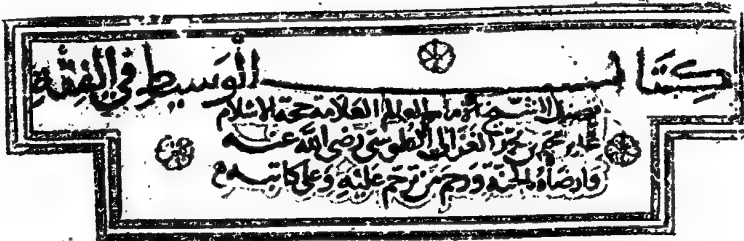 كتاب الوسيط في الفقه
تصنيف الشيخ الإمام العالم العلامة حجة الاسلام
محمد بن محمد الغزالي الطوسي رضي الله عنه
وارضاه بالجنة ورحم من ترحم عليه وعلى كاتبه